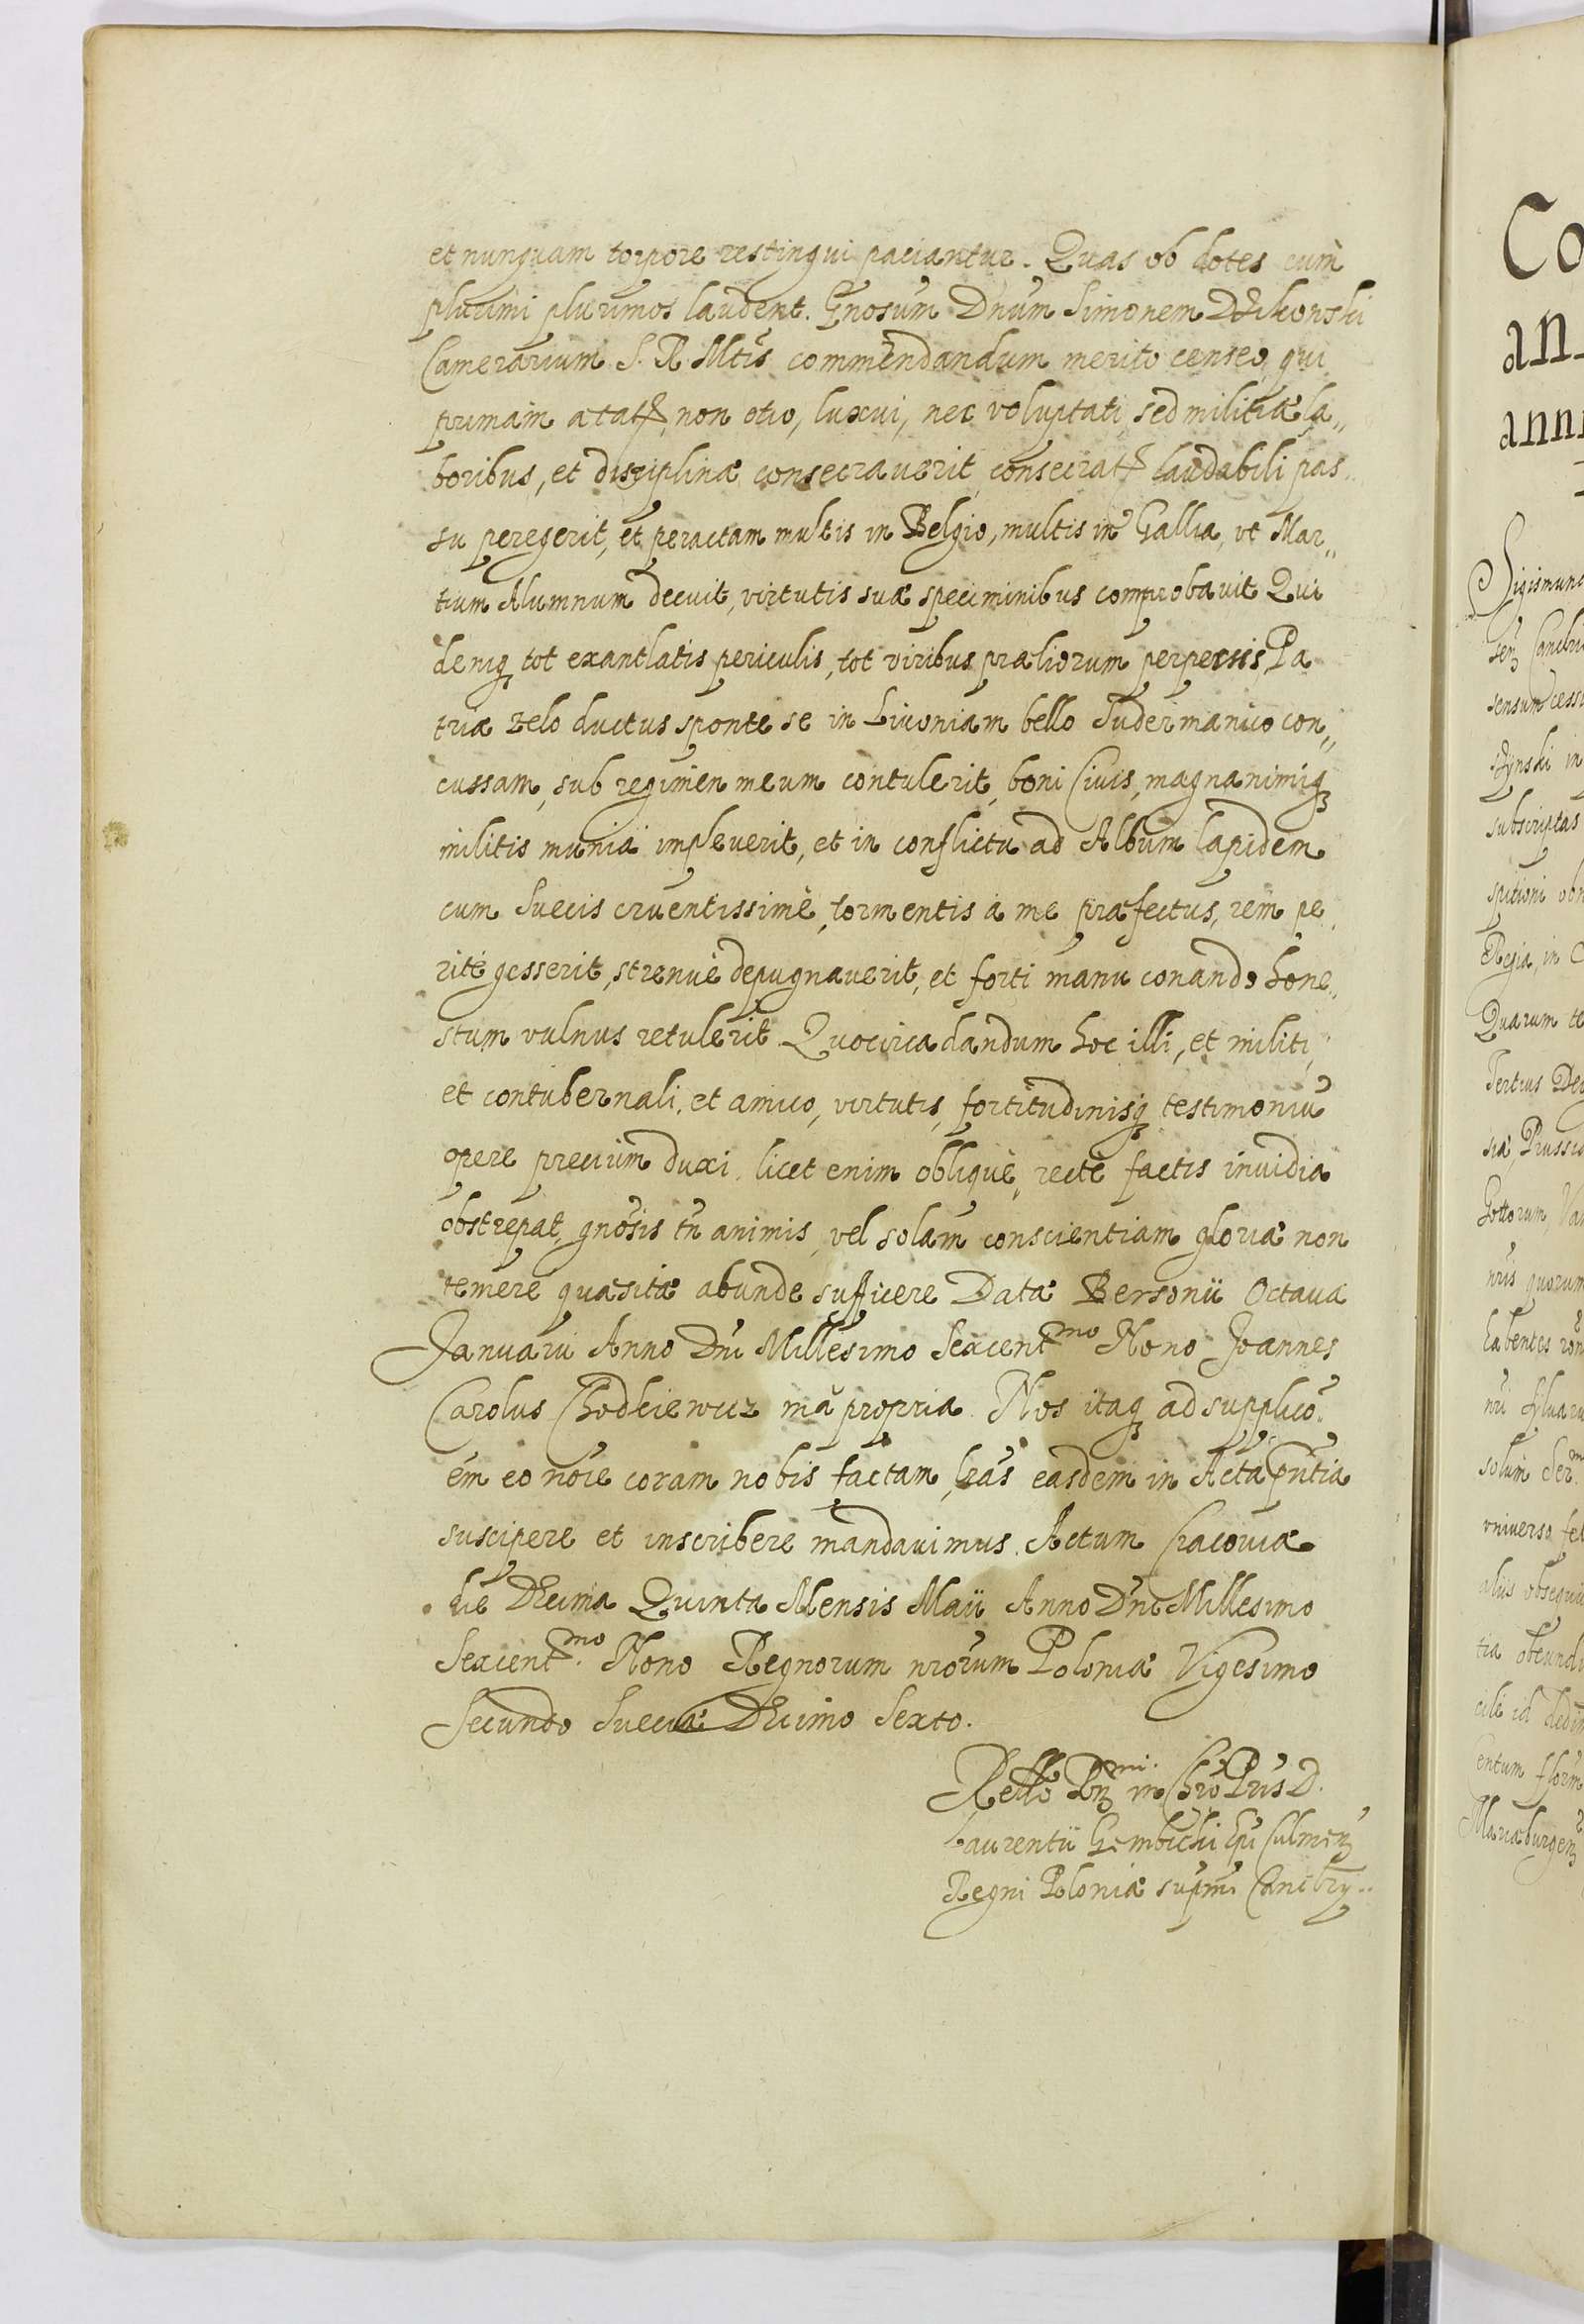 et nunquam torpore restingui paciantur. Quas ob dotes cum
plurimi plurimos laudent. Gnosum Dnum Simonem
Camerarium S. R. Mtis commendandum merito censeo, qui
primam non otio, luxui, nec voluptati sed militiæ la„
boribus, et disciplinæ consecraverit, laudabili pas„
su peregerit, et peractam multis in Belgio, multis in Gallia, vt Mar„
tium Alumnum decuit, virtutis suæ speciminibus comprobavit Qui
deniq tot exantlatis periculis, tot viribus præliorum perpessis, Pa
triæ zelo ductus sponte se in Livoniam bello Sudermanico con„
cussam, sub regimen meum contulerit, boni Civis, magnanimiq
militis munia impleverit, et in conflictu ad Album lapidem
cum Suecis cruentissimè, tormentis à me præfectus, rem pe„
ritè gesserit, strenuè depugnaverit, et forti manu conando hone„
stum vulnus retulerit Quocirca dandum hoc illi, et militi,
et contubernali, et amico, virtutis, fortitudinisq testimoniũ
opere precium duxi. licet enim obliquè, rectè factis invidia
obstrepat, gnosis tn animis, vel solam conscientiam gloriæ non
temere quæsitæ abunde sufficere Datæ Bersonii Octava
Januarii Anno Dni Millesimo Sexcent.mo Nono Joannes
Carolus Chodkiewicz mã propria. Nos itaq ad supplicõ„
em eo noie coram nobis factam, lras easdem in Acta pntia
suscipere et inscribere mandavimus. Actum Cracoviæ
die Decima Quinta Mensis Maii Anno Dni Millesimo
Sexcent.mo Nono Regnorum nrorum Poloniæ Vigesimo
Secundo Sueciæ Decimo Sexto.
in Chro Pris D.
Laurentii Gembicki Epi Culmen
Regni Poloniæ supm
Co
an
ann
Sigismun
sensum cess
subscriptas
Regia, in
Quarum te
Tertius De
siæ, Prussi
Gottorum, Va
nris quorum
habentes
solum Ser.m
universo fe
aliis obsequi
Mariæburgen